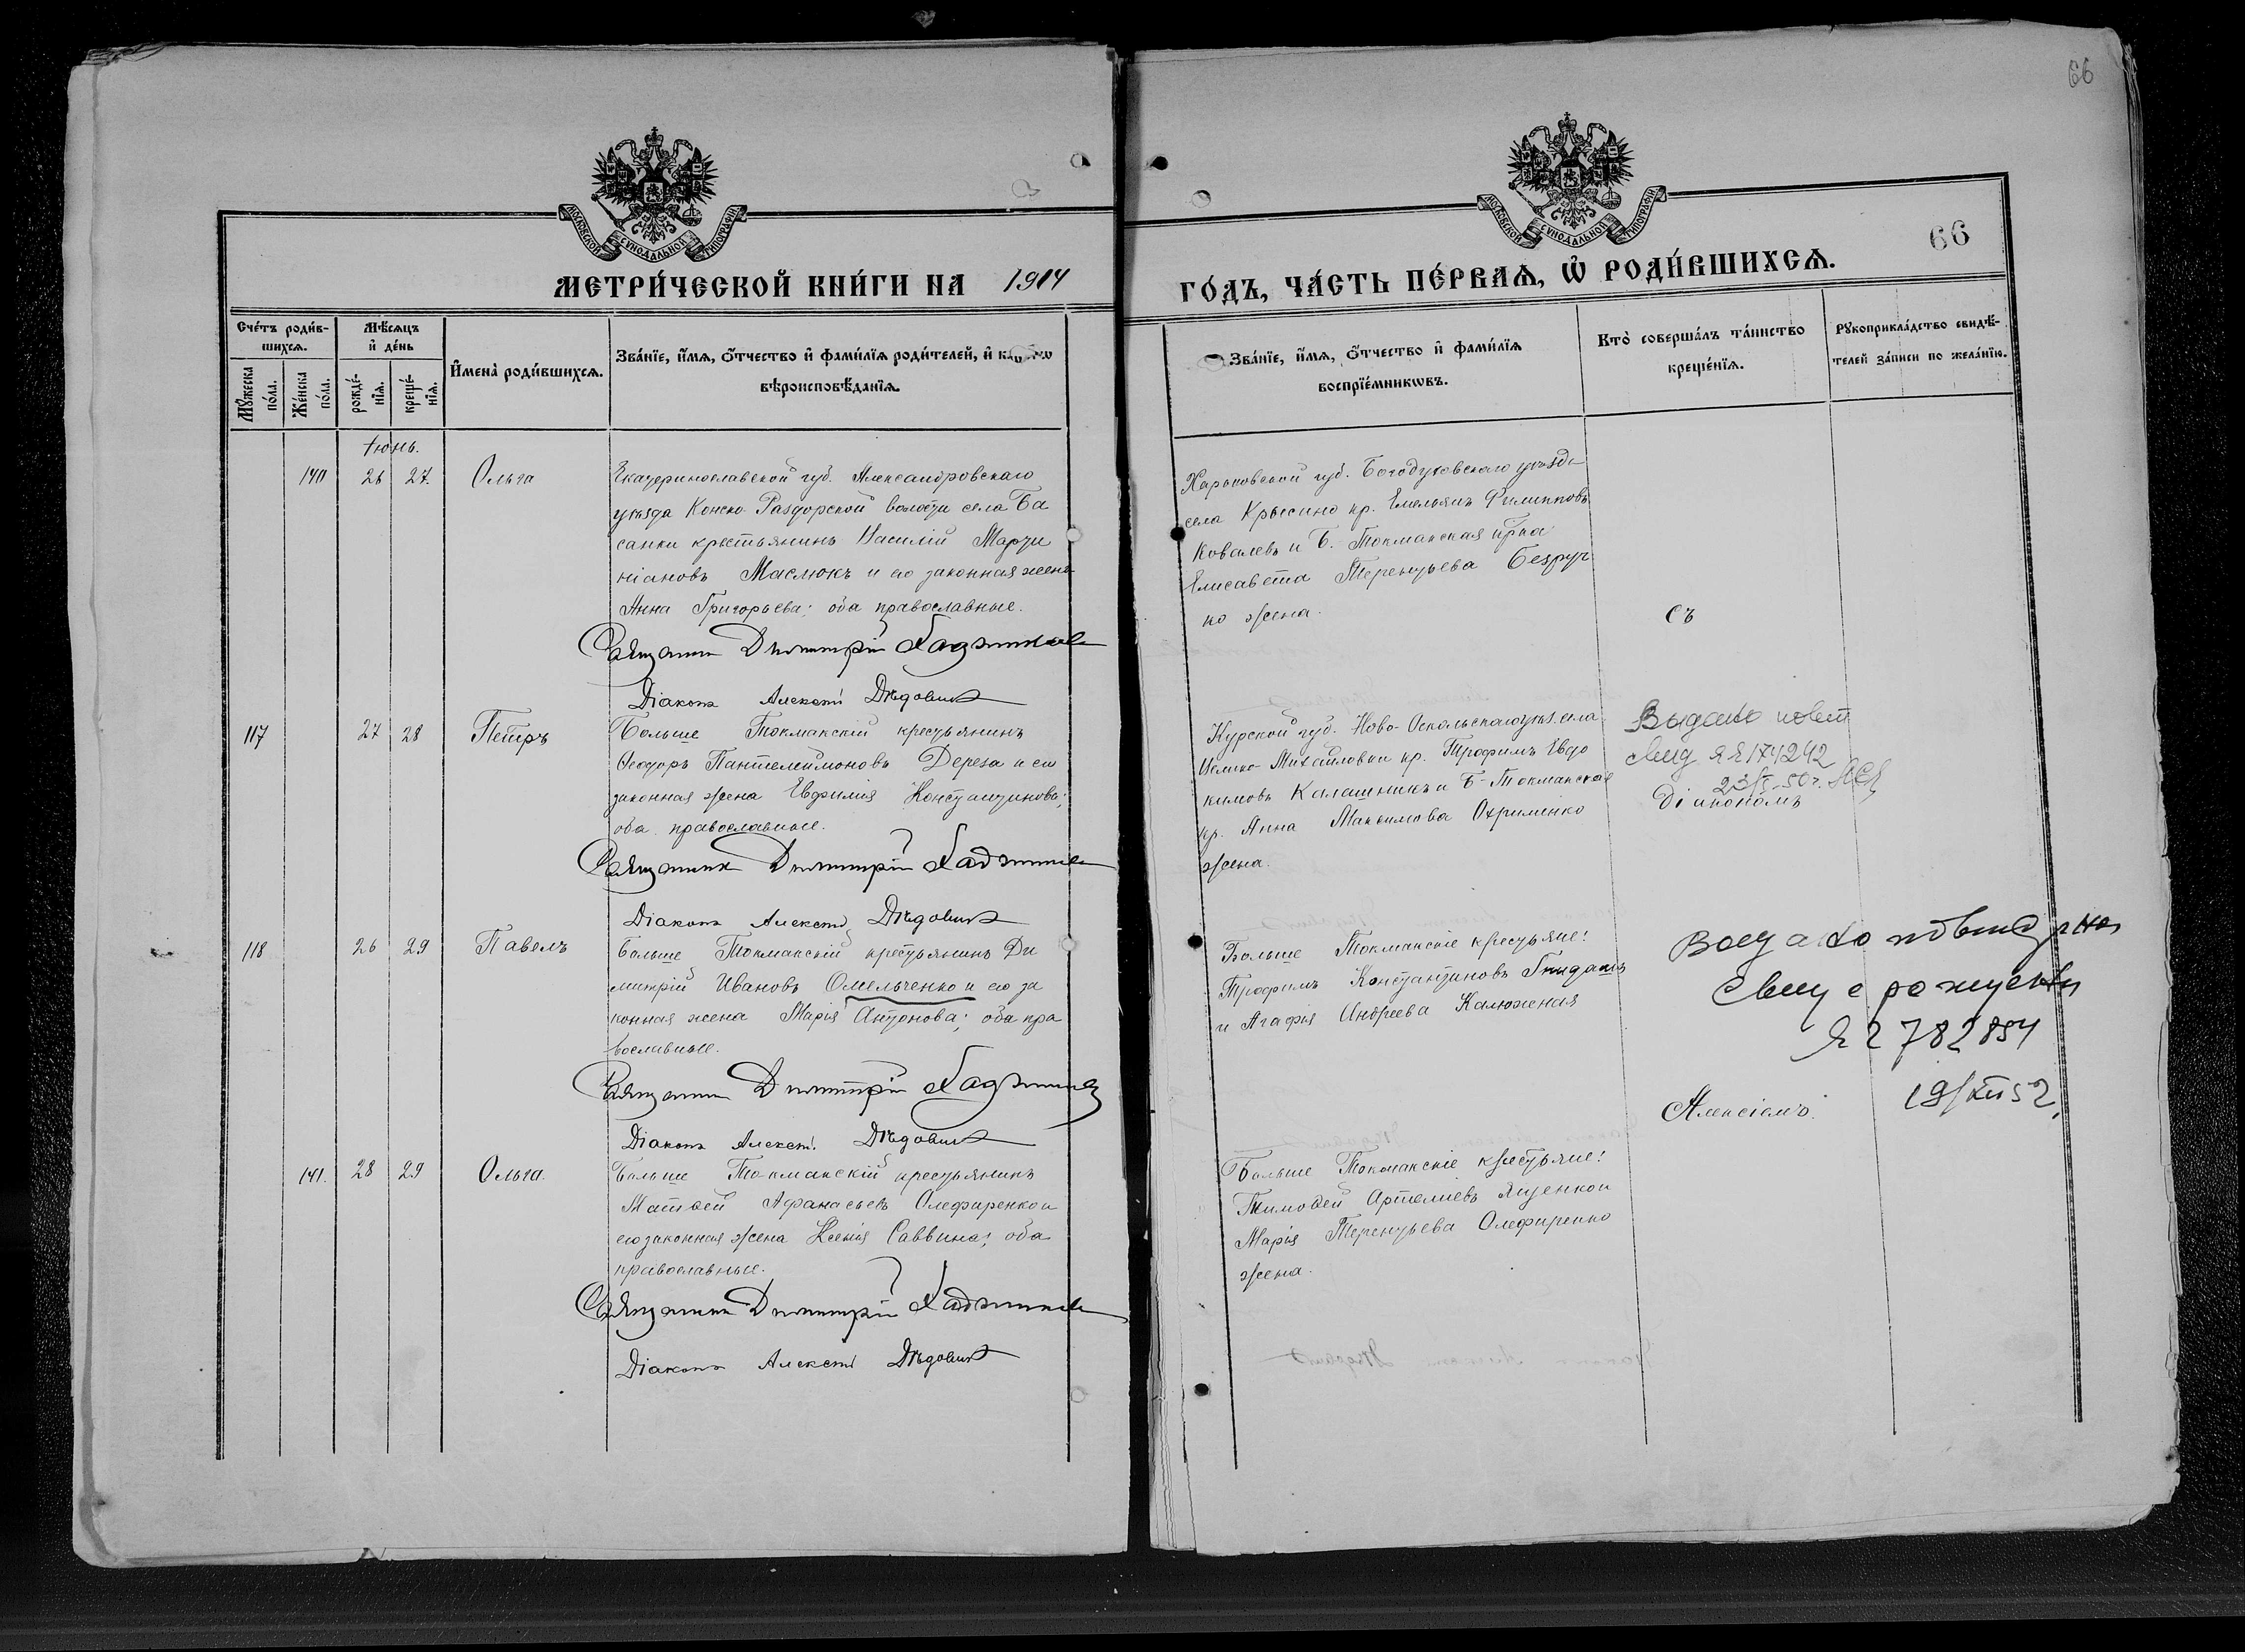 66
МОСКОВСКОЙ СѴНОДАЛЬНОЙ ТИПОГРАФІИ
МОСКОВСКОЙ СѴНОДАЛЬНОЙ ТИПОГРАФІИ
66
МЕТРИ́ЧЕСКОЙ КНИ́ГИ НА 1914 ГО́ДЪ, ЧА́СТЬ ПЕ́РВАѦ, Ѽ РОДИ́ВШИХСѦ.
Сче́тъ роди́в-
шихсѧ.
Мꙋжеска по́ла.
Же́нска по́ла.
Мѣ́сяцъ
и҆ де́нь
рожде́-
нїѧ.
креще́-
нїѧ.
И҆мена̀ роди́вшихсѧ.
Зва́нїе, и҆́мѧ, ѻ҆́тчество и҆ фами́лїѧ роди́телей, и҆
вѣроисповѣ́данїѧ.
Зва́нїе, и҆́мѧ, ѻ҆́тчество и҆ фами́лїѧ
воспрїе́мникѡвъ.
Кто̀ соверша́лъ та́инство
креще́нїѧ.
Рꙋкоприкла́дство свидѣ́-
телей за́писи по жела́нїю.
Іюнь.
140 26 27 Ольга
Екатеринославской губ. Александровскаго
уѣзда Конско-Раздорской волости села Ба
санки крестьянинъ Василій Марти
ніановъ Маслюкъ и его законная жена
Анна Григорьева; оба православные.
Священникъ Димитрій
Діаконъ Алексій Дѣдовичъ
Харьковской губ. Богодуховскаго уѣзда
села Крысино кр. Емельянъ Филипповъ
Ковалевъ и Б.-Токмакская кр-ка
Елисавета Терентьева Безруч
ко жена.
Съ
117 27 28 Петръ
Больше Токмакскій крестьянинъ
Ѳеодоръ Пантелеимоновъ Дереза и его
законная жена Евфимія Константинова;
оба православные.
Священникъ Димитрій
Діаконъ Алексій Дѣдовичъ
Курской губ. Ново-Оскольскаго уѣз. села
Велико-Михайловки кр. Трофимъ Евдо
кимовъ Калашникъ и Б-Токмакская
кр. Анна Максимова Охрименко
жена.
Выдано повт
свид 174242
23/ 50 г.
Діакономъ
118 26 29 Павелъ
Больше Токмакскій крестьянинъ Ди
митрій Ивановъ Омельченко и его за
конная жена Марія Антонова; оба пра
вославные.
Священникъ Димитрій
Діаконъ Алексій Дѣдовичъ
Больше Токмакскіе крестьяне:
Трофимъ Константиновъ
и Агафія Андреева Калюжная
782854
19/XII 52
Алексіемъ.
141. 28 29 Ольга.
Больше Токмакскій крестьянинъ
Матѳей Афанасьевъ Олефиренко и
его законная жена Ксенія Саввина; оба
православные.
Священникъ Димитрій
Діаконъ Алексій Дѣдовичъ
Больше Токмакскіе крестьяне:
Тимоѳей Артемiевъ Яценко и
Марія Терентьева Олефиренко
жена.